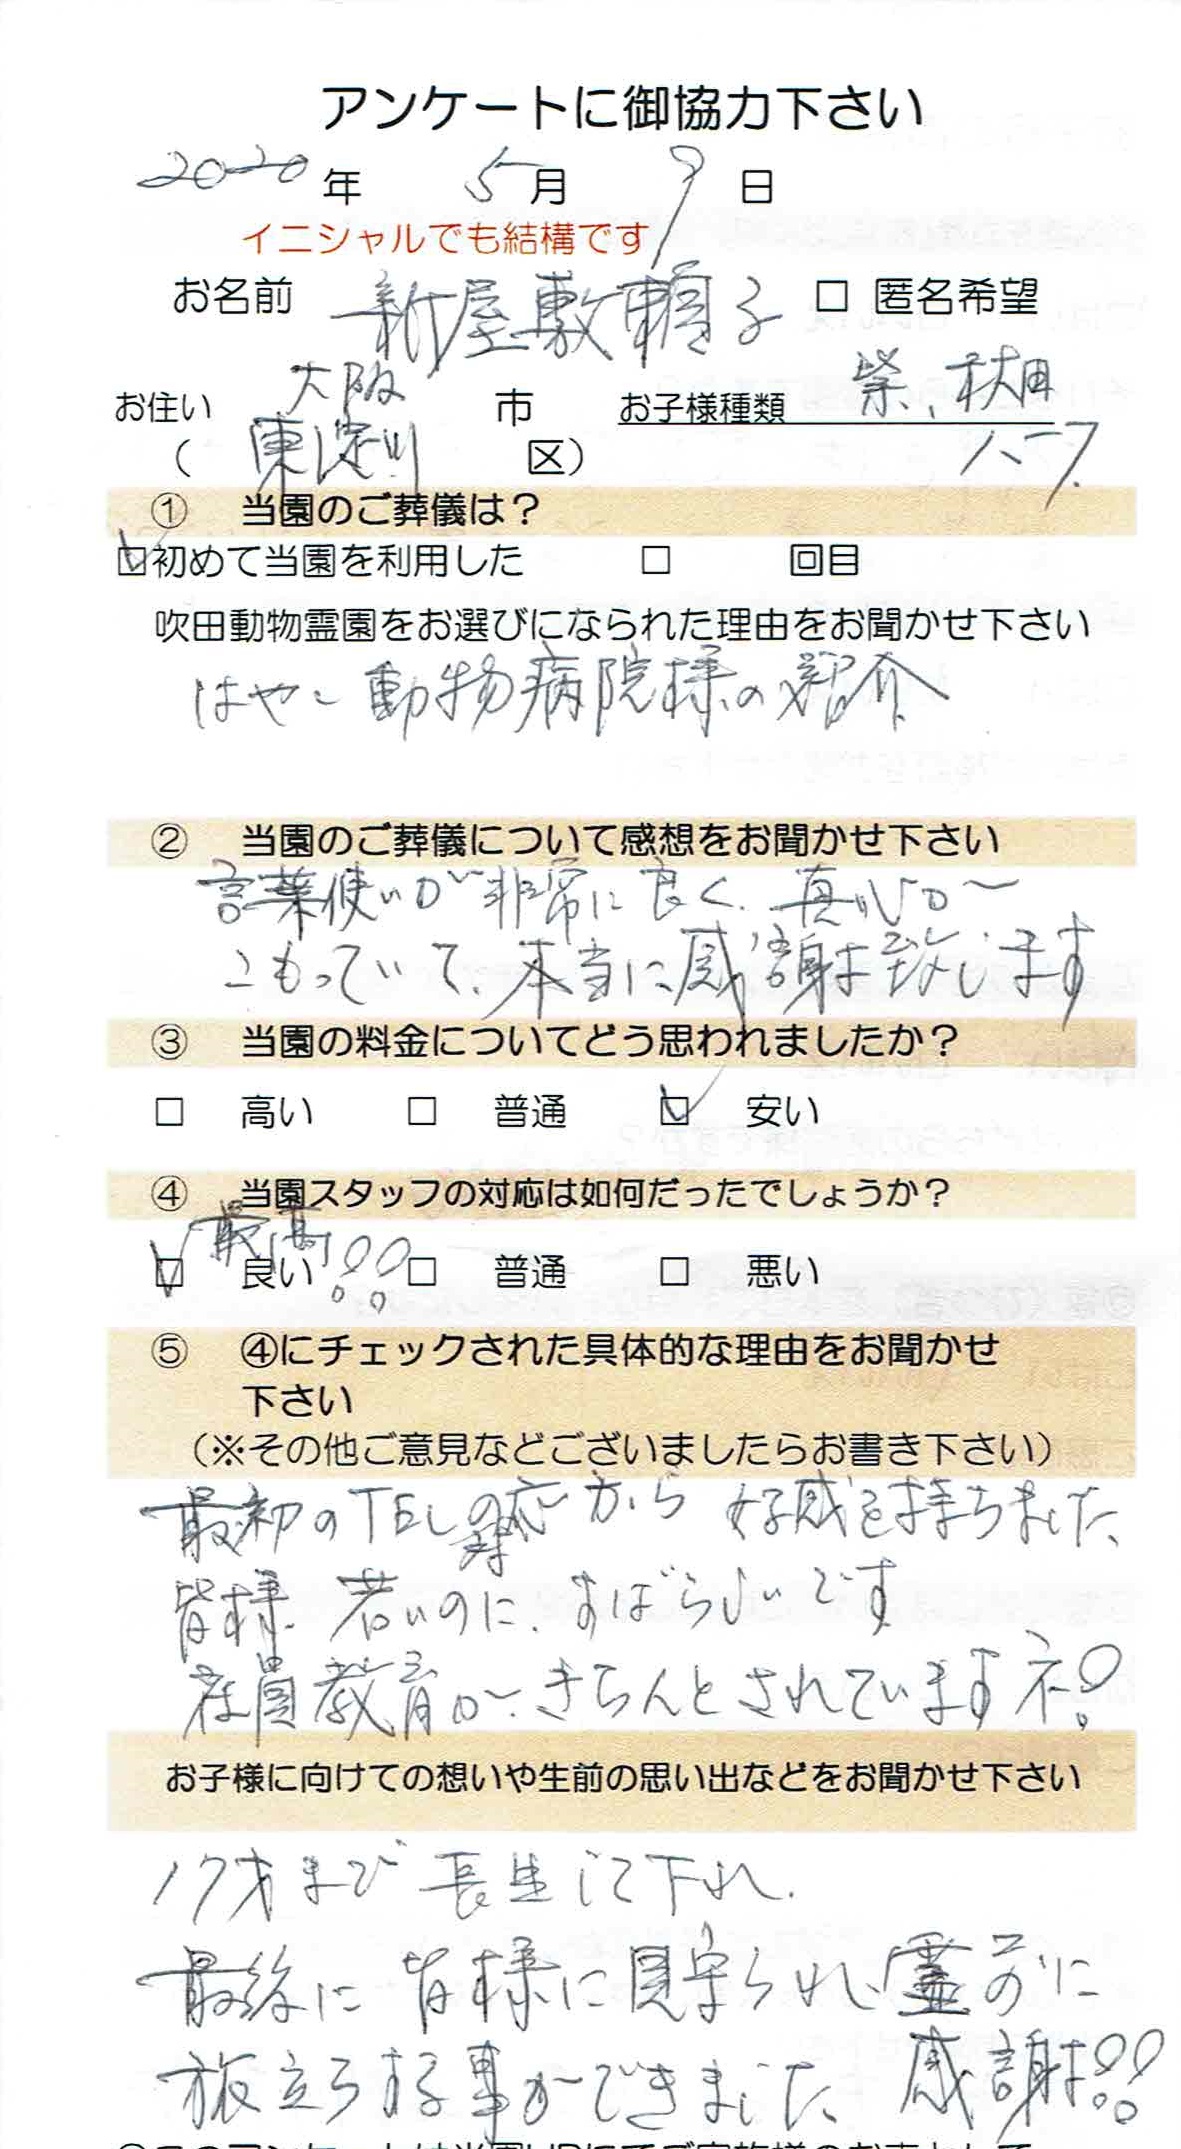 アンケートに御協力下さい
2020年 5月 9日
イニシャルでも結構です
お名前 新屋敷 子 □ 匿名希望
お住い 大阪 市 お子様種類 柴、秋田
( 東淀川 区) ハーフ
① 当園のご葬儀は？
☑初めて当園を利用した □ 回目
吹田動物霊園をお選びになられた理由をお聞かせ下さい
はやし動物病院様の紹介
② 当園のご葬儀について感想をお聞かせ下さい
言葉使いが非常に良く、真心が
こもっていて、本当に感謝致します
③ 当園の料金についてどう思われましたか？
□ 高い □ 普通 ☑ 安い
④ 当園スタッフの対応は如何だったでしょうか？
最高!!
☑ 良い □ 普通 □ 悪い
⑤ ④にチェックされた具体的な理由をお聞かせ
下さい
（※その他ご意見などございましたらお書き下さい）
最初のTELの対応から 好感を持ちました、
皆様、若いのに、すばらしいです
社員教育が、きちんとされていますネ!
お子様に向けての想いや生前の思い出などをお聞かせ下さい
17才まで長生して下れ、
最後に皆様に見守られ、霊 に
旅立ちする事ができました、感謝!!